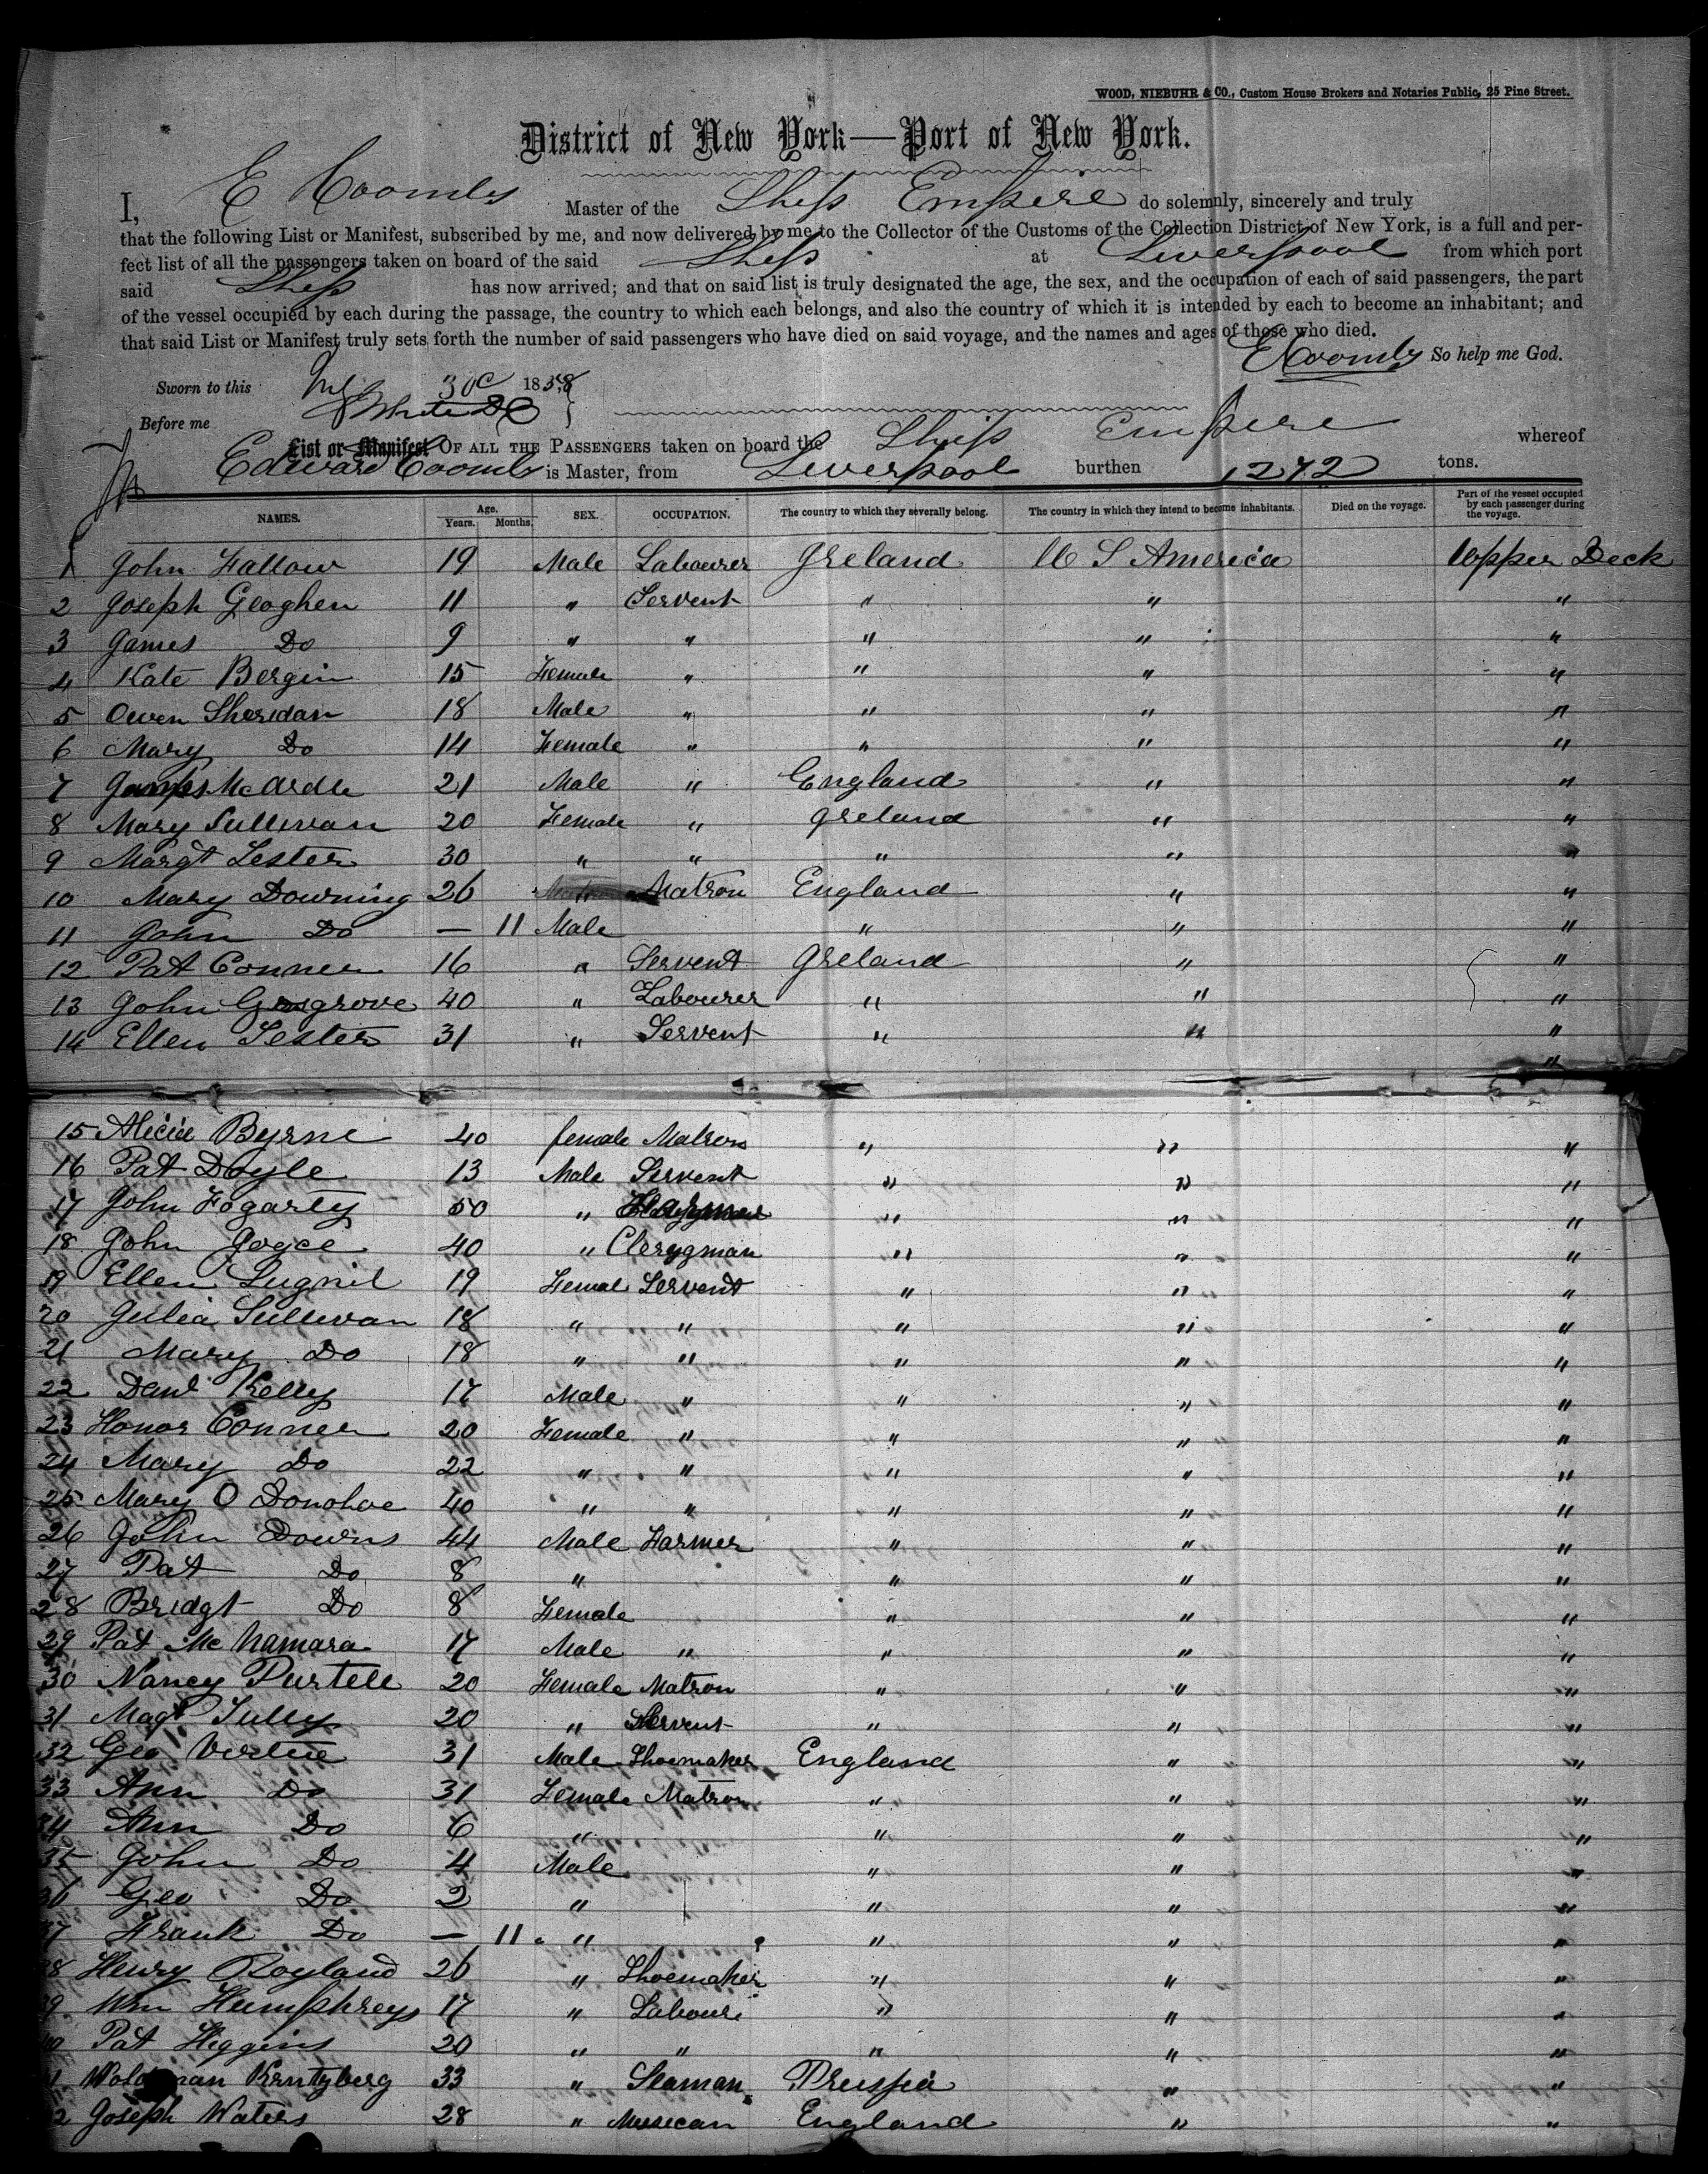 WOOD, NIEBUHR & CO., Custom House Brokers and Notaries Public, 25 Pine Street.
District of New York—Port of New York.
I, E Coombs Master of the Ship Empire do solemnly, sincerely and truly
that the following List or Manifest, subscribed by me, and now delivered by me to the Collector of the Customs of the Collection District of New York, is a full and per-
fect list of all the passengers taken on board of the said Ship at Liverpool from which port
said Ship has now arrived; and that on said list is truly designated the age, the sex, and the occupation of each of said passengers, the part
of the vessel occupied by each during the passage, the country to which each belongs, and also the country of which it is intended by each to become an inhabitant; and
that said List or Manifest truly sets forth the number of said passengers who have died on said voyage, and the names and ages of those who died.
E Coombs So help me God.
Sworn to this 30 1858
Before me White
List or Manifest OF ALL THE PASSENGERS taken on board the Ship Empire whereof
Edward Coombs is Master, from Liverpool burthen 1272 tons.
NAMES. Age. Years. Months. SEX. OCCUPATION. The country to which they severally belong. The country in which they intend to become inhabitants. Died on the voyage. Part of the vessel occupied by each passenger during the voyage.
1 John Fallow 19 Male Labourer Ireland U S America Upper Deck
2 Joseph Geoghen 11 " Servent " " "
3 James Do 9 " " " " "
4 Kate Bergin 15 Female " " " "
5 Owen Sheridan 18 Male " " " "
6 Mary Do 14 Female " " " "
7 James McArdle 21 Male " England " "
8 Mary Sullivan 20 Female " Ireland " "
9 Margt Lester 30 " " " " "
10 Mary Downing 26 " Matron England " "
11 John Do — 11 Male " " "
12 Pat Conner 16 " Servent Ireland " "
13 John 40 " Labourer " " "
14 Ellen Lester 31 " Servent " " "
"
15 Alicia Byrne 40 female Matron " " "
16 Pat Doyle 13 Male Servent " " "
17 John Fogarty 50 " " " "
18 John Joyce 40 " Clergyman " " "
19 Ellen 19 Femal Servent " " "
20 Julia Sullivan 18 " " " " "
21 Mary Do 18 " " " " "
22 Danl Kelly 17 Male " " " "
23 Honor Conner 20 Female " " " "
24 Mary Do 22 " " " " "
25 Mary O Donohoe 40 " " " " "
26 John Downs 44 Male Farmer " " "
27 Pat Do 8 " " " "
28 Bridgt Do 8 Female " " "
29 Pat McNamara 17 Male " " " "
30 Nancy Purtell 20 Female Matron " " "
31 Magt Tully 20 " Servent " " "
32 Geo Vertue 31 Male Shoemaker England " "
33 Ann Do 31 Female Matron " " "
34 Ann Do 6 " " " "
35 John Do 4 Male " " "
36 Geo Do 2 " " " "
37 Frank Do — 11 " " " "
38 Henry Royland 26 " Shoemaker " " "
39 Wm Humphreys 17 " Labour " " "
40 Pat Higgins 20 " " " " "
41 33 " Seaman Prussia " "
42 Joseph Waters 28 " Musecan England " "